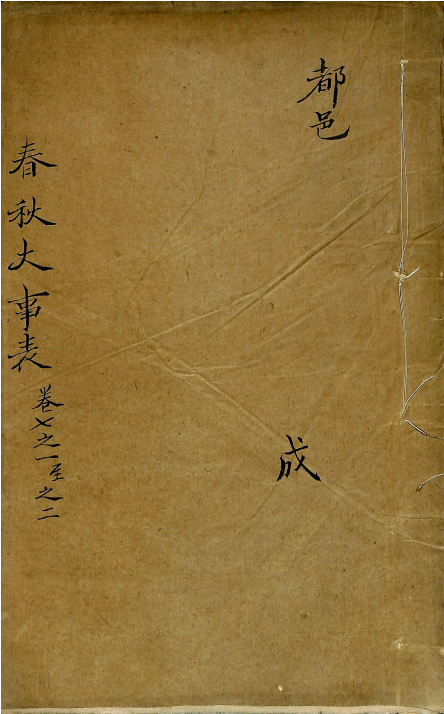 都邑
成
春秋大事表
卷七之一至之二